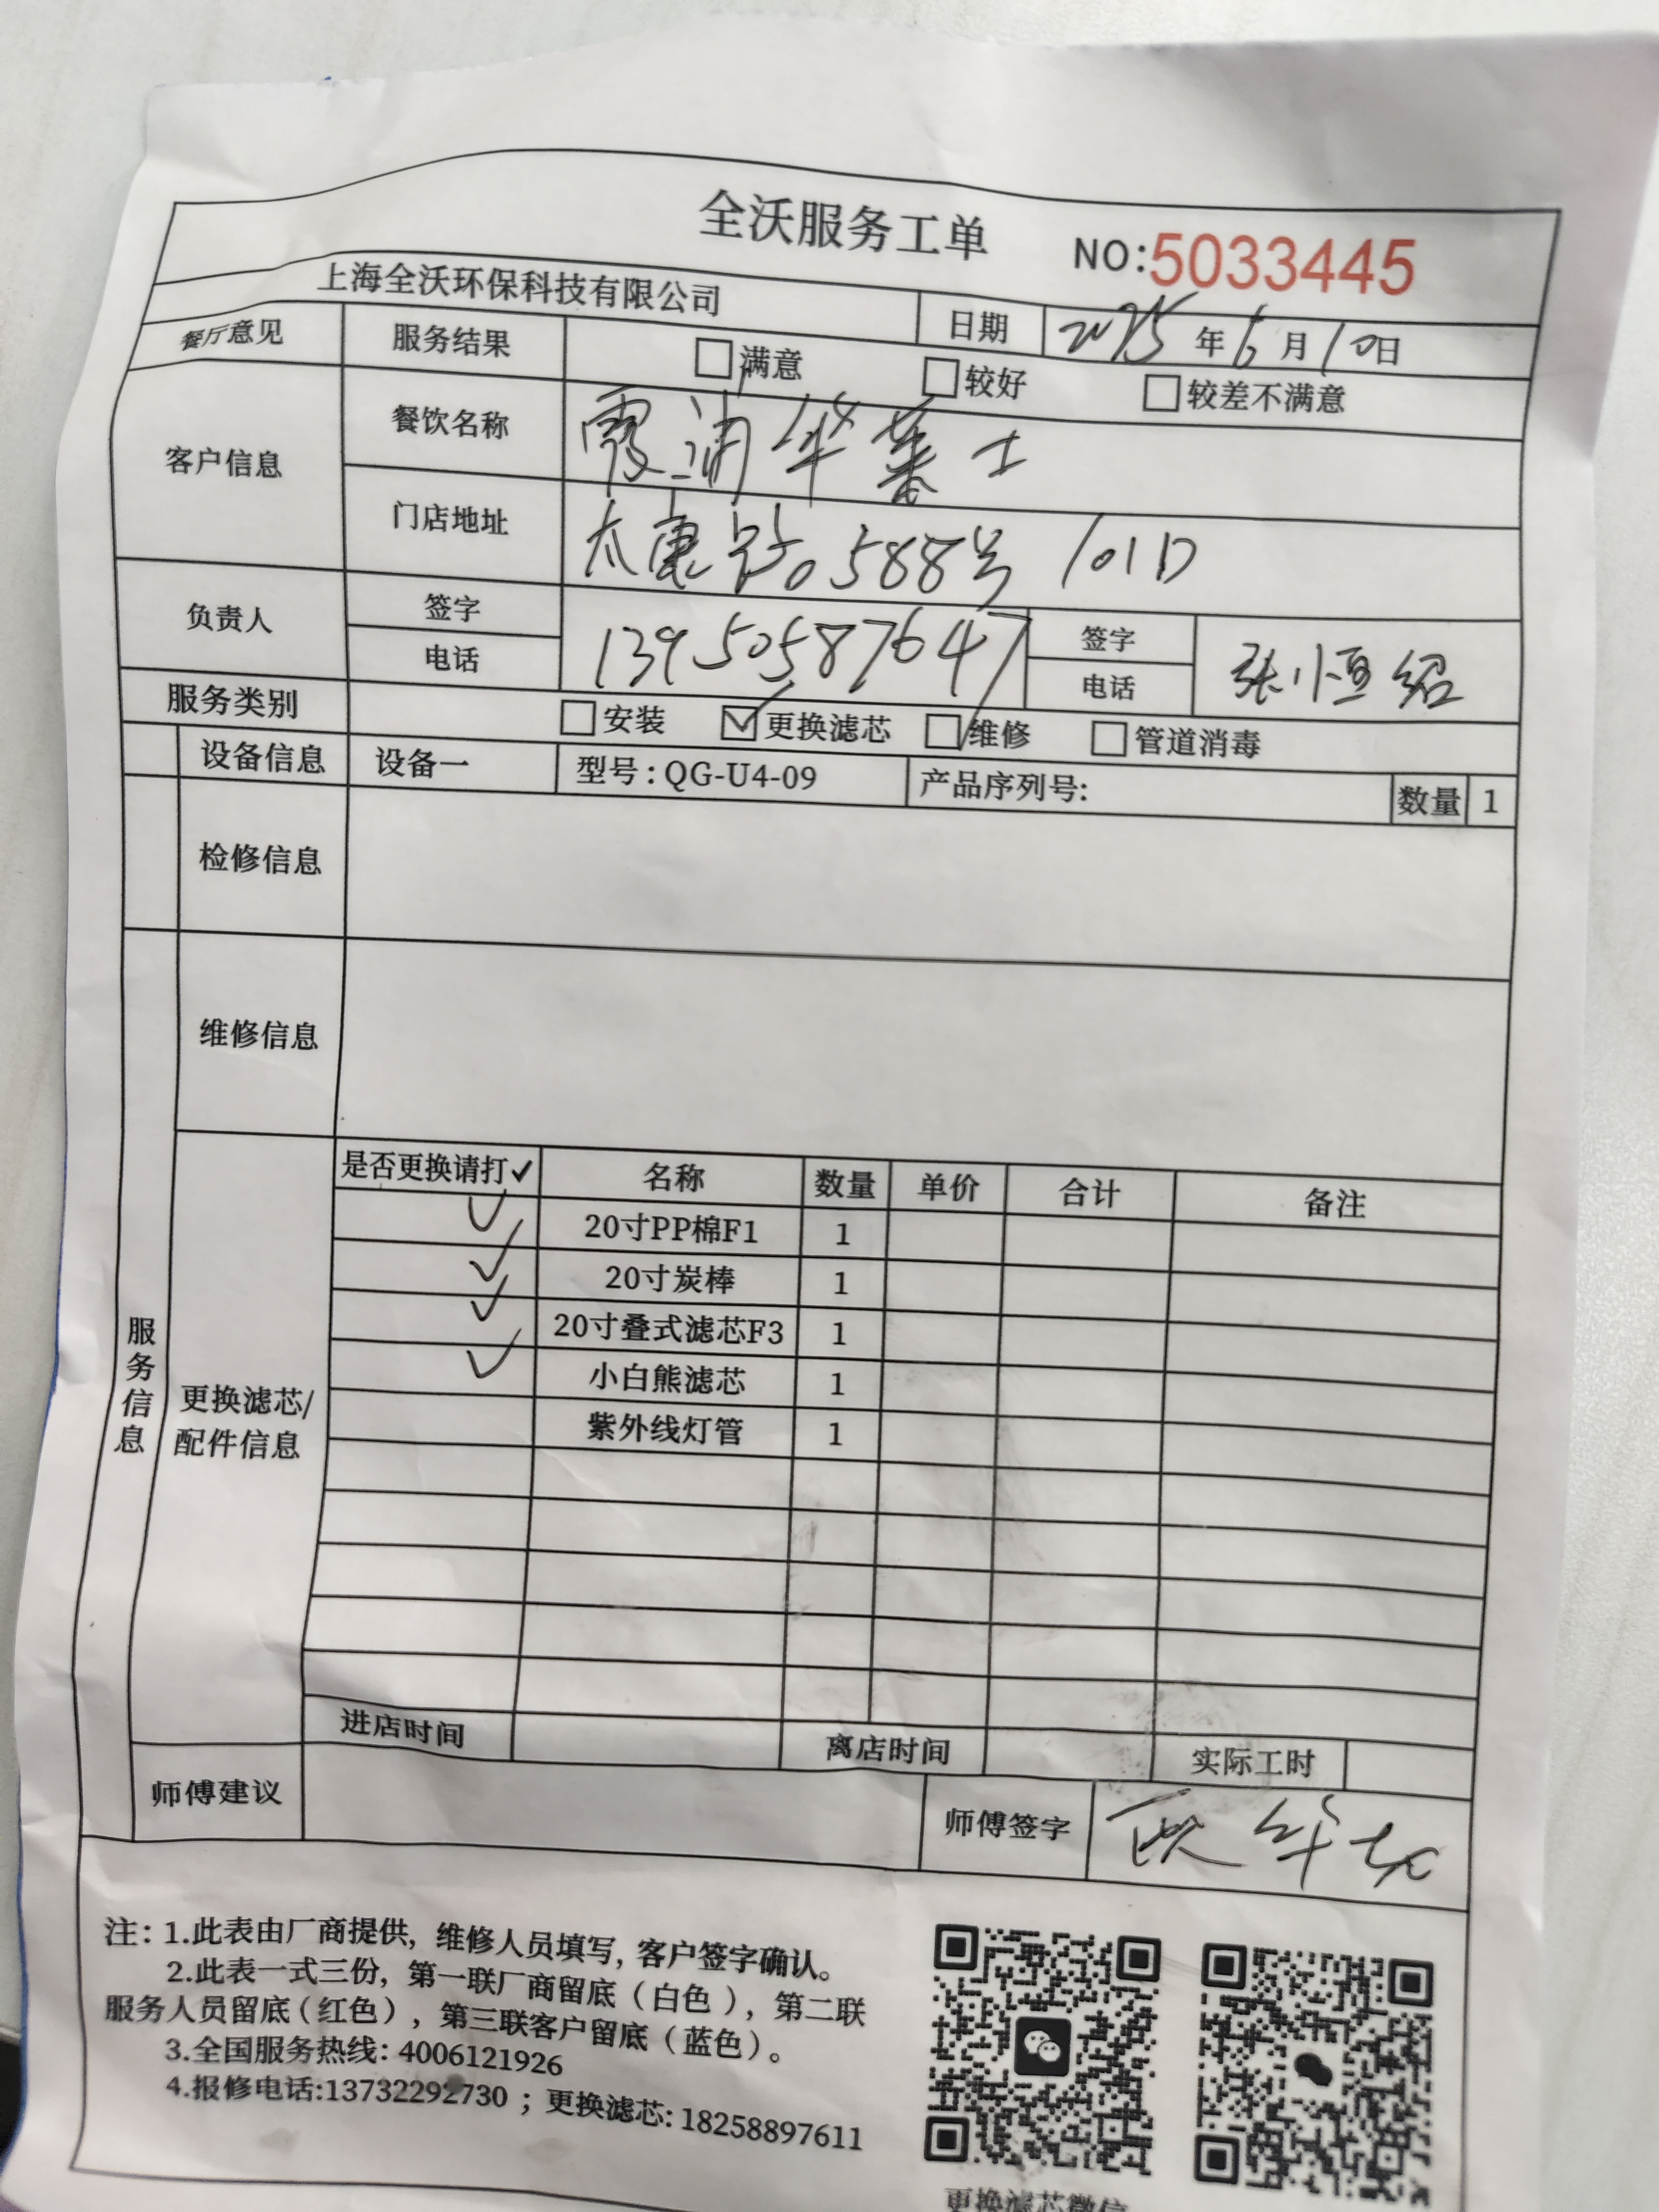 全沃服务工单 NO:5033445
上海全沃环保科技有限公司 日期 2025年6月10日
餐厅意见 服务结果 □满意 □较好 □较差不满意
客户信息 餐饮名称 霞浦华莱士
门店地址 太康路588号 101D
负责人 签字 电话 13950587647 签字 电话 张恒绍
服务类别 □安装 ☑更换滤芯 □维修 □管道消毒
设备信息 设备一 型号:QG-U4-09 产品序列号: 数量 1
检修信息
维修信息
服务信息
更换滤芯/
配件信息
是否更换请打✓ 名称 数量 单价 合计 备注
✓ 20寸PP棉F1 1
✓ 20寸炭棒 1
✓ 20寸叠式滤芯F3 1
✓ 小白熊滤芯 1
紫外线灯管 1
进店时间 离店时间 实际工时
师傅建议 师傅签字
注: 1.此表由厂商提供, 维修人员填写, 客户签字确认。
2.此表一式三份, 第一联厂商留底（白色）, 第二联
服务人员留底（红色）, 第三联客户留底（蓝色）。
3.全国服务热线: 4006121926
4.报修电话:13732292730 ; 更换滤芯: 18258897611
更换滤芯微信